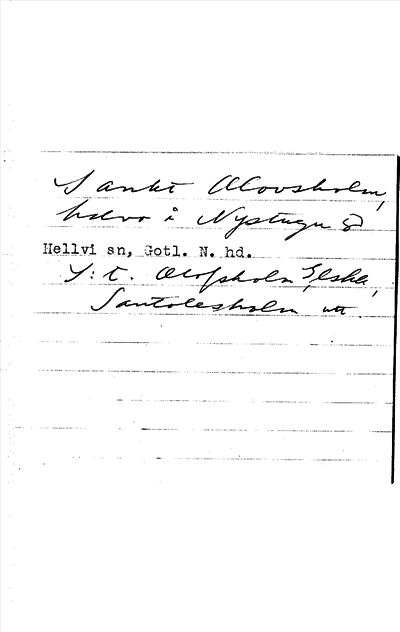 Sankt Olovsholm,
halvö i Nystugu
Hellvi sn, Gotl. N. hd.
S:t. Olofsholm Elska,
Santolesholm utt.